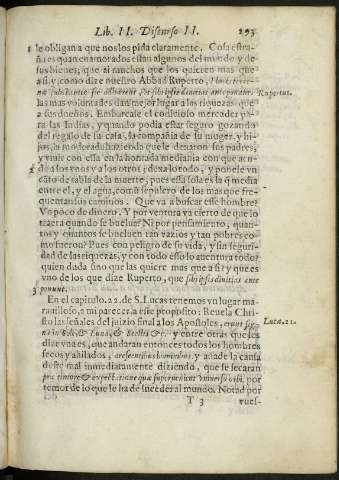 Lib. II. Discurso II. 293
le obligan a que nos los pida claramente. Cosa estra-
ña es quan enamorados estan algunos del mundo y de
sus bienes, que ai muchos que los quieren mas que a
si, y como dize nuestro Abbad Ruperto,
Rupertus.
las mas voluntades dan mejor lugar a las riquezas que
a sus dueños. Embarcase el codicioso mercader pa-
ra las Indias, y quando podia estar seguro gozando
del regalo de su casa, la compañia de su muger, y hi-
jos, la moderada hazienda que le dexaron sus padres,
y vivir con essa en la honrada mediania con que acu-
dio a los unos y a los otros; dexalo todo, y ponele un
canto de tabla de la muerte, pues essa sola es la q̃ media
entre el, y el agua, comũ sepulcro de los mas que fre-
quentan sus caminos. Que va a buscar esse hombre?
Vn poco de dinero. Y por ventura va cierto de que lo
traera quando se buelua? Ni por pensamiento, quan-
tos y quantos se bueluen tan vazios y tan pobres co-
mo fueron? Pues con peligro de su vida, y sin seguri-
dad de las riquezas, y con todo esso lo auentura todo:
quien duda sino que las quiere mas que a si? y que es
vno de los que dize Ruperto, que sibi ipsis divitias ante
ponunt.
3
En el capitulo. 22. de S. Lucas tenemos vn lugar ma-
rauilloso, a mi parecer, a este proposito: Reuela Chris-
to las señales del juizio final a los Apostoles, erunt sig-
Luca. 21.
na in Sole, & Luna, & Stellis &c. y entre otras que les
dize vna es, que andaran entonces todos los hombres
secos y ahilados, arescentibus hominibus. y añade la causa
deste mal inmediatamente diziendo, que se secaran
præ timore & expectatione quæ supervenient vniuerso orbi, por
temor de lo que le ha de suceder al mundo. Notad por
T 3 vues-